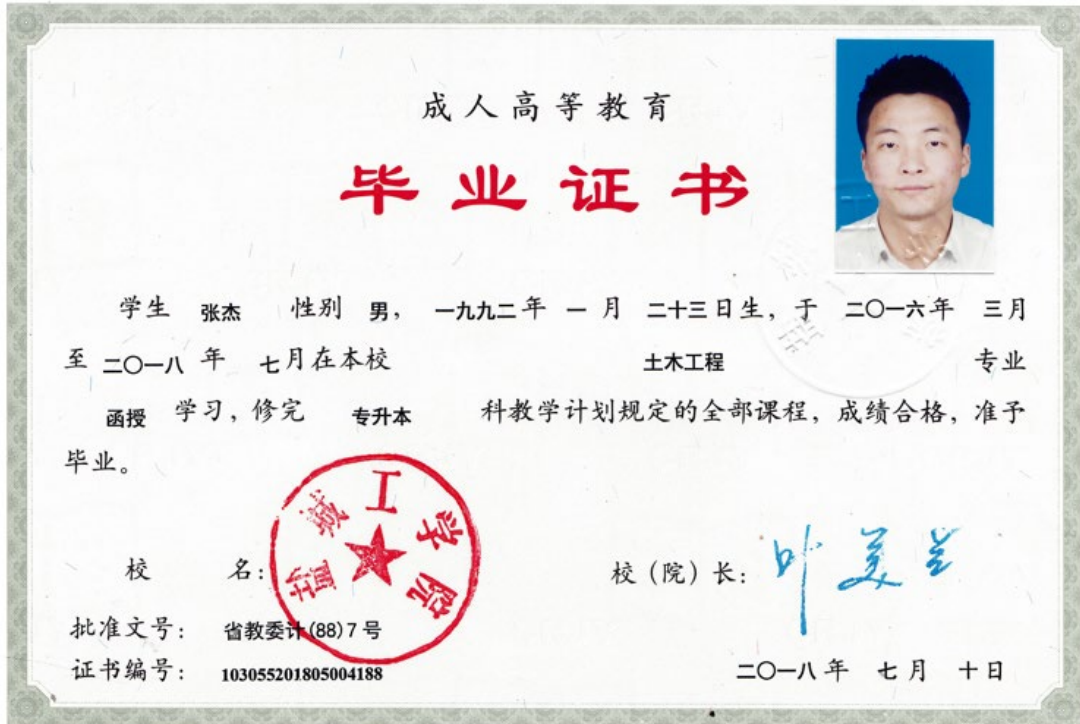 成人高等教育
毕业证书
学生 张杰 性别 男， 一九九二年 一 月 二十三日生，于 二〇一六年 三月
至 二〇一八 年 七月在本校 土木工程 专业
函授 学习，修完 专升本 科教学计划规定的全部课程，成绩合格，准予
毕业。
盐城工学院
校 名：
校（院）长：
批准文号： 省教委计(88)7号
证书编号： 103055201805004188
二〇一八年 七月 十日